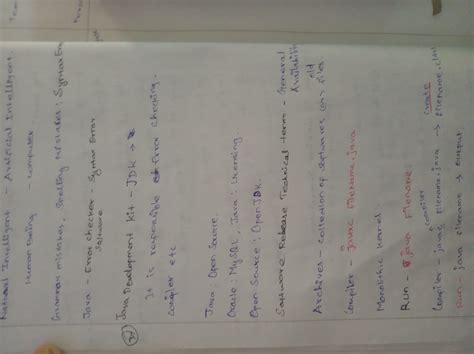 Natural Intelligent - Artificial Intelligent.
Human being - computer
Grammar mistakes, Spelling mistakes: Syntax Err
Java - Error checker - Syntax Error
Software
Java Development Kit - JDK →
It is responsible Error checking.
compiler etc
Java: Open Source.
Oracle: MySQL, Java: Licensing.
Open Source: OpenJDK.
Software Release Technical term - General
Availability
Archives - collection of softwares (or) files
old
Compiler - javac Filename.java
Monolithic kernel
Run: java filename.
compiler
create
Compiler - javac filename.java → filename.class
Run - java filename → output